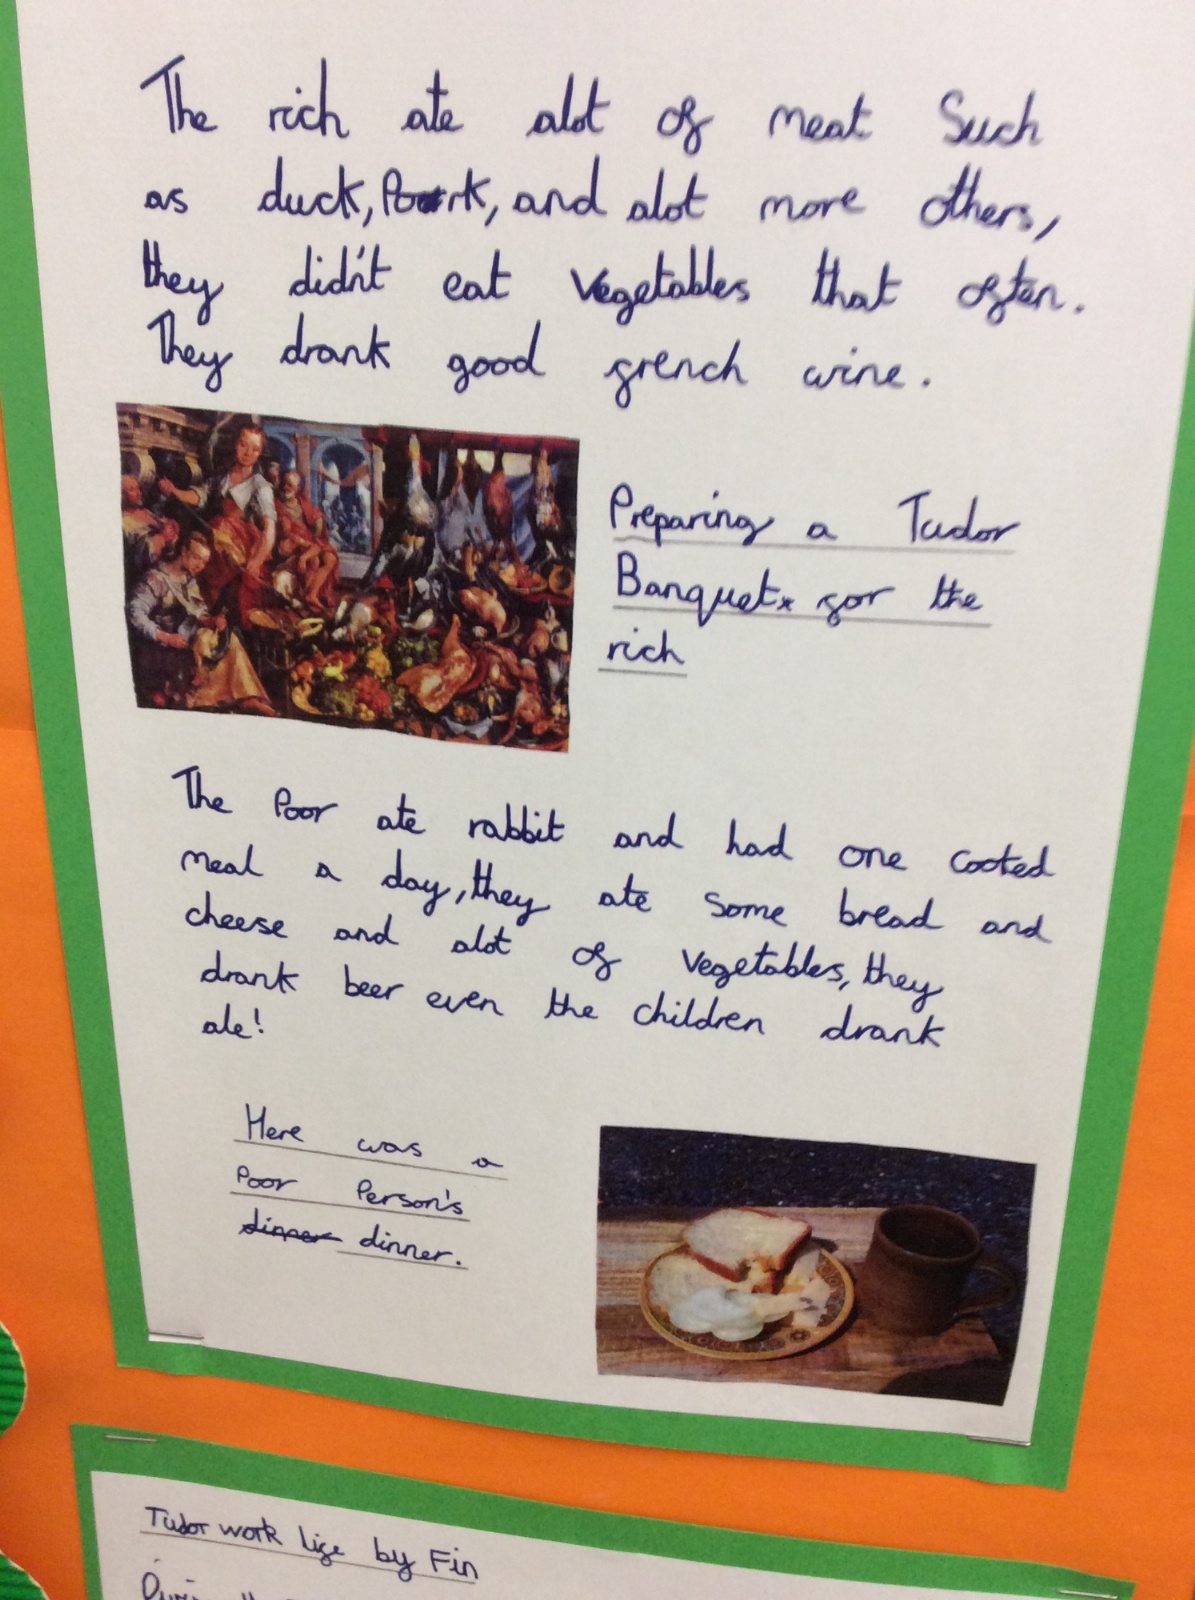 The rich ate alot of meat Such
as duck, Pork, and alot more others,
they didn't eat vegetables that often.
They drank good french wine.
Preparing a Tudor
Banquet for the
rich
The Poor ate rabbit and had one cooked
meal a day, they ate some bread and
cheese and alot of vegetables, they
drank beer even the children drank
ale!
Here was a
Poor Person's
dinner dinner.
Tudor work life by Fin